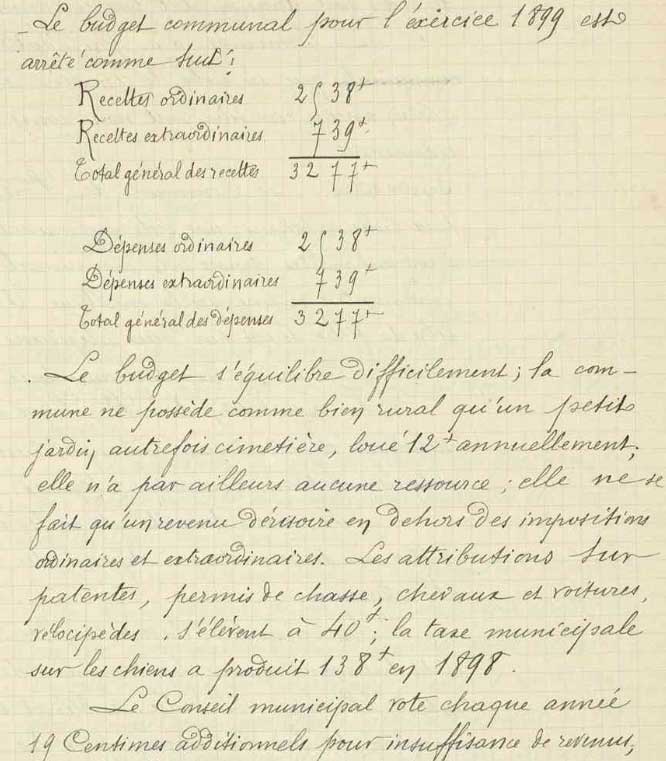 Le budget communal pour l'éxercice 1899 est
arrêté comme suit :
Recettes ordinaires 2538f
Recettes extraordinaires 739f
Total général des recettes 3277f
Dépenses ordinaires 2538f
Dépenses extraordinaires 739f
Total général des dépenses 3277f
Le budget s'équilibre difficilement ; la com-
mune ne possède comme bien rural qu'un petit
jardin, autrefois cimetière, loué 12f annuellement ;
elle n'a par ailleurs aucune ressource ; elle ne se
fait qu'un revenu dérisoire en dehors des impositions
ordinaires et extraordinaires. Les attributions sur
patentes, permis de chasse, chevaux et voitures,
vélocipèdes, s'élèvent à 40f ; la taxe municipale
sur les chiens a produit 138f en 1898.
Le Conseil municipal vote chaque année
19 Centimes additionnels pour insuffisance de revenus,